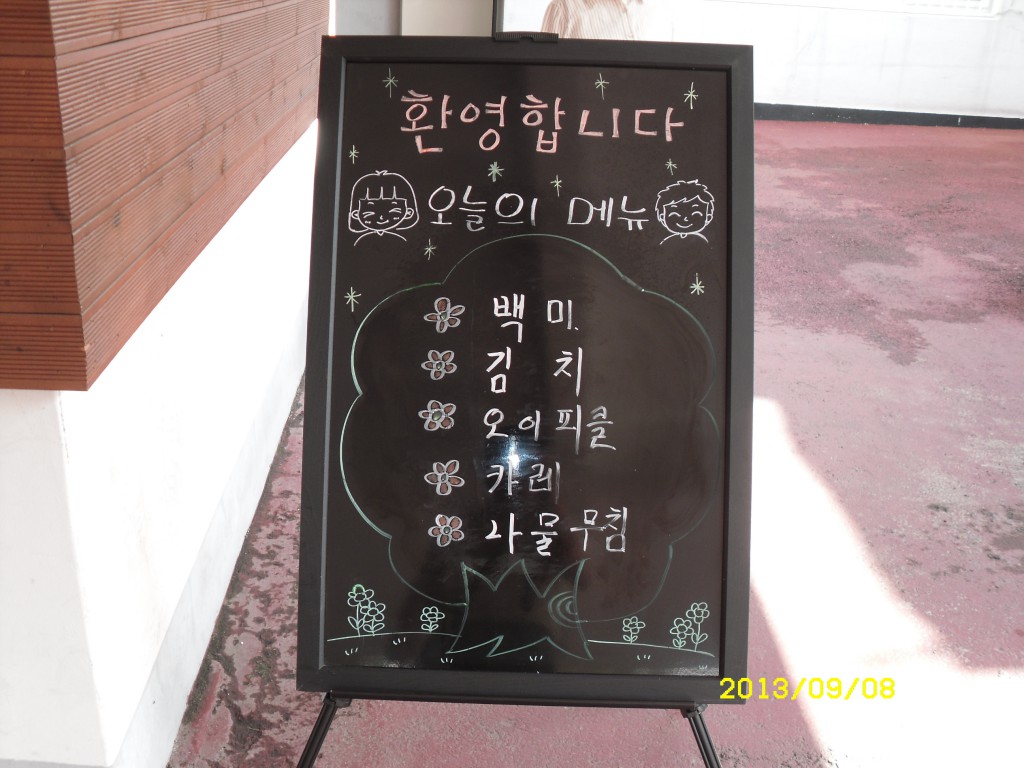 환영합니다
오늘의 메뉴
백미.
김치
오이피클
카레
사물무침
2013/09/08